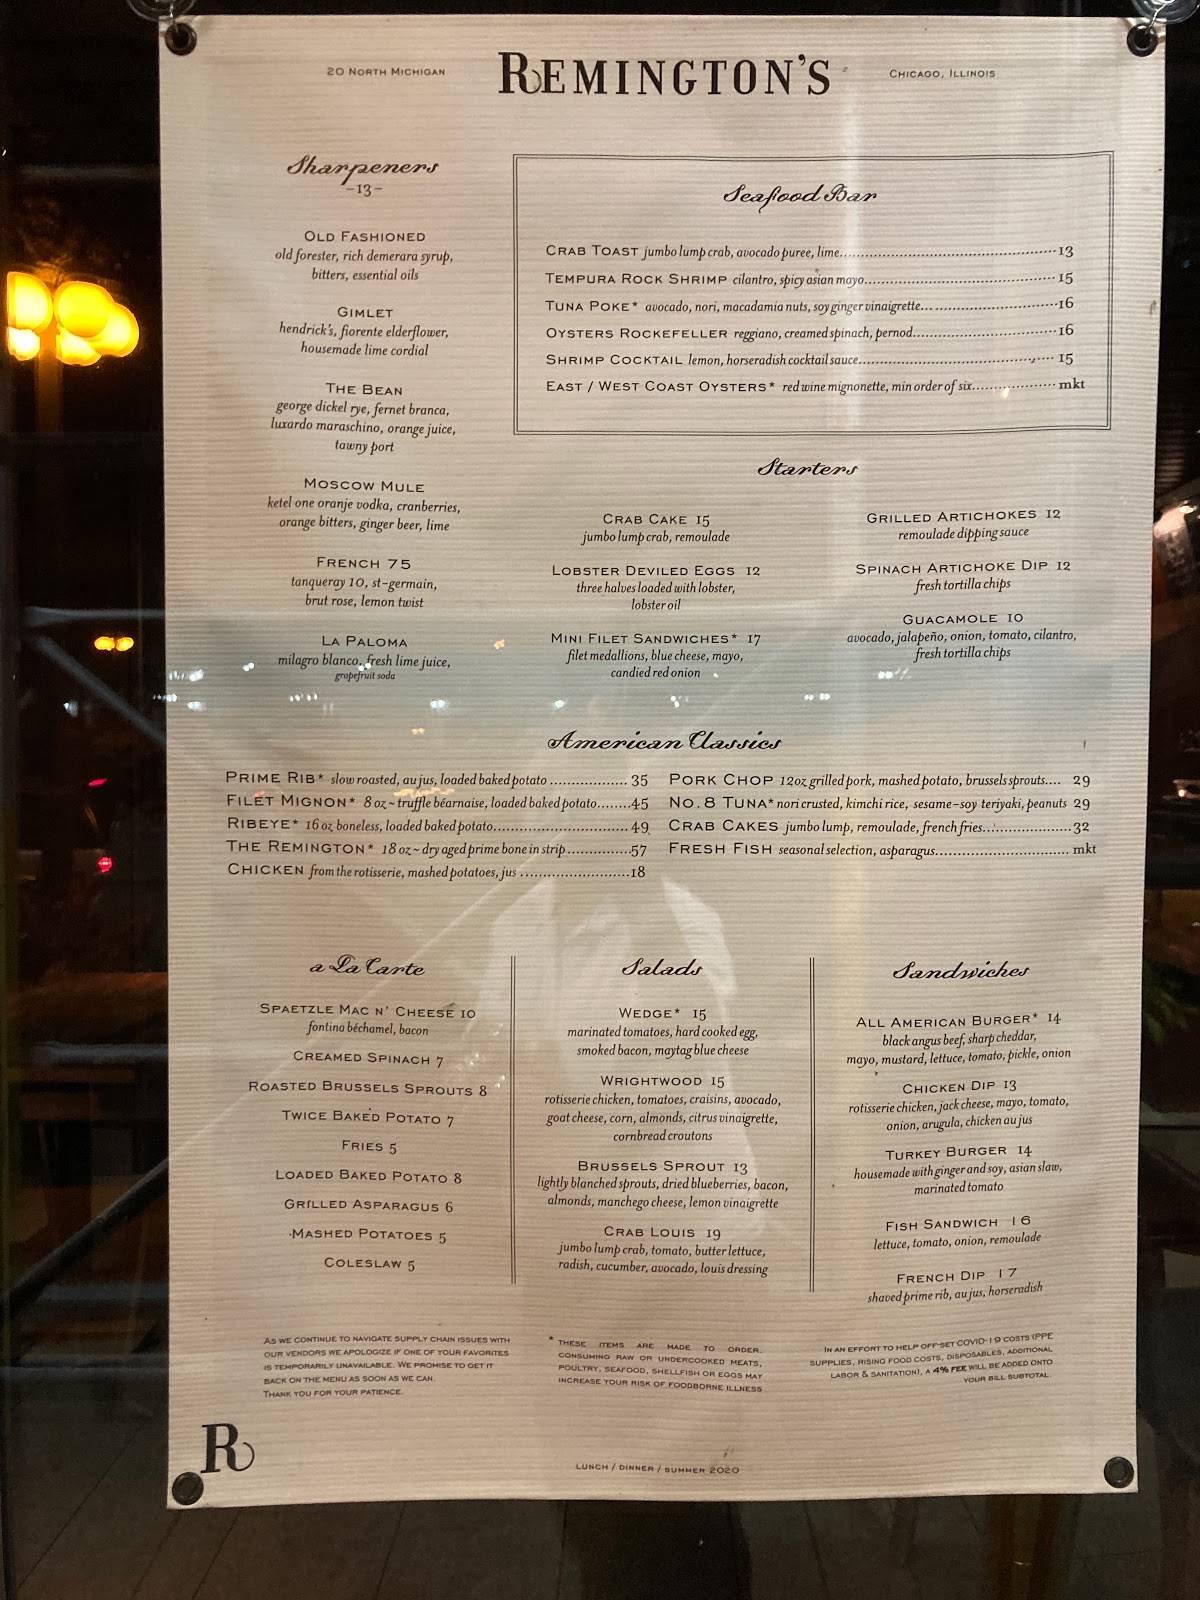 20 North Michigan
REMINGTON'S
Chicago, Illinois
Sharpeners
-13-
Old Fashioned
old forester, rich demerara syrup,
bitters, essential oils
Gimlet
hendrick's, fiorente elderflower,
housemade lime cordial
The Bean
george dickel rye, fernet branca,
luxardo maraschino, orange juice,
tawny port
Moscow Mule
ketel one oranje vodka, cranberries,
orange bitters, ginger beer, lime
French 75
tanqueray 10, st-germain,
brut rose, lemon twist
La Paloma
milagro blanco, fresh lime juice,
grapefruit soda
Seafood Bar
Crab Toast jumbo lump crab, avocado puree, lime 13
Tempura Rock Shrimp cilantro, spicy asian mayo 15
Tuna Poke* avocado, nori, macadamia nuts, soy ginger vinaigrette 16
Oysters Rockefeller reggiano, creamed spinach, pernod 16
Shrimp Cocktail lemon, horseradish cocktail sauce 15
East / West Coast Oysters* red wine mignonette, min order of six mkt
Starters
Crab Cake 15
jumbo lump crab, remoulade
Lobster Deviled Eggs 12
three halves loaded with lobster,
lobster oil
Mini Filet Sandwiches* 17
filet medallions, blue cheese, mayo,
candied red onion
Grilled Artichokes 12
remoulade dipping sauce
Spinach Artichoke Dip 12
fresh tortilla chips
Guacamole 10
avocado, jalapeño, onion, tomato, cilantro,
fresh tortilla chips
American Classics
Prime Rib* slow roasted, au jus, loaded baked potato 35
Filet Mignon* 8 oz ~ truffle béarnaise, loaded baked potato 45
Ribeye* 16 oz boneless, loaded baked potato 49
The Remington* 18 oz ~ dry aged prime bone in strip 57
Chicken from the rotisserie, mashed potatoes, jus 18
Pork Chop 12oz grilled pork, mashed potato, brussels sprouts 29
No. 8 Tuna* nori crusted, kimchi rice, sesame-soy teriyaki, peanuts 29
Crab Cakes jumbo lump, remoulade, french fries 32
Fresh Fish seasonal selection, asparagus mkt
a La Carte
Spaetzle Mac n' Cheese 10
fontina béchamel, bacon
Creamed Spinach 7
Roasted Brussels Sprouts 8
Twice Baked Potato 7
Fries 5
Loaded Baked Potato 8
Grilled Asparagus 6
Mashed Potatoes 5
Coleslaw 5
Salads
Wedge* 15
marinated tomatoes, hard cooked egg,
smoked bacon, maytag blue cheese
Wrightwood 15
rotisserie chicken, tomatoes, craisins, avocado,
goat cheese, corn, almonds, citrus vinaigrette,
cornbread croutons
Brussels Sprout 13
lightly blanched sprouts, dried blueberries, bacon,
almonds, manchego cheese, lemon vinaigrette
Crab Louis 19
jumbo lump crab, tomato, butter lettuce,
radish, cucumber, avocado, louis dressing
Sandwiches
All American Burger* 14
black angus beef, sharp cheddar,
mayo, mustard, lettuce, tomato, pickle, onion
Chicken Dip 13
rotisserie chicken, jack cheese, mayo, tomato,
onion, arugula, chicken au jus
Turkey Burger 14
housemade with ginger and soy, asian slaw,
marinated tomato
Fish Sandwich 16
lettuce, tomato, onion, remoulade
French Dip 17
shaved prime rib, au jus, horseradish
As we continue to navigate supply chain issues with
our vendors we apologize if one of your favorites
is temporarily unavailable. We promise to get it
back on the menu as soon as we can.
Thank you for your patience.
* These items are made to order.
Consuming raw or undercooked meats,
poultry, seafood, shellfish or eggs may
increase your risk of foodborne illness
In an effort to help off-set COVID-19 costs (PPE
supplies, rising food costs, disposables, additional
labor & sanitation), a 4% fee will be added onto
your bill subtotal.
R
Lunch / Dinner / Summer 2020